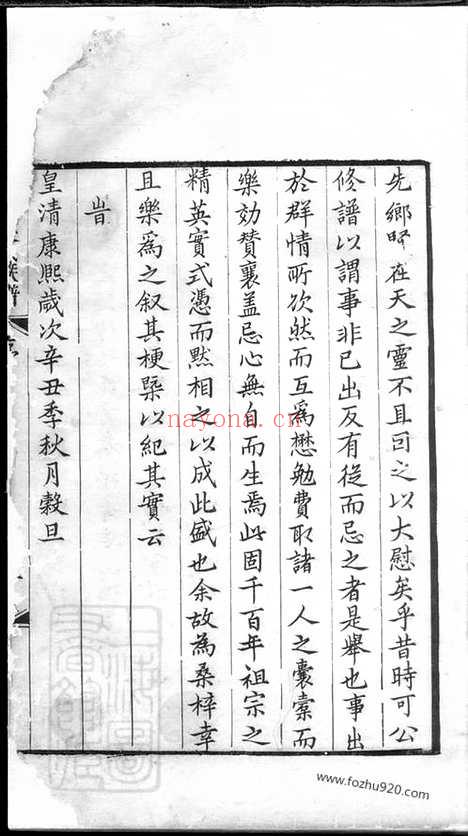 先鄉賢在天之靈不且可之以大慰矣乎昔時可公
修譜以謂事非已出反有從而忌之者是舉也事出
於群情所次然而互爲懋勉費取諸一人之囊橐而
樂効賛襄盖忌心無自而生焉此固千百年祖宗之
精英實式憑而黙相之以成此盛也余故為桑梓幸
且樂爲之叙其梗槩以紀其實云
旹
皇清康熙歲次辛丑季秋月穀旦
族譜
nayona.cn
www.fozhu920.com